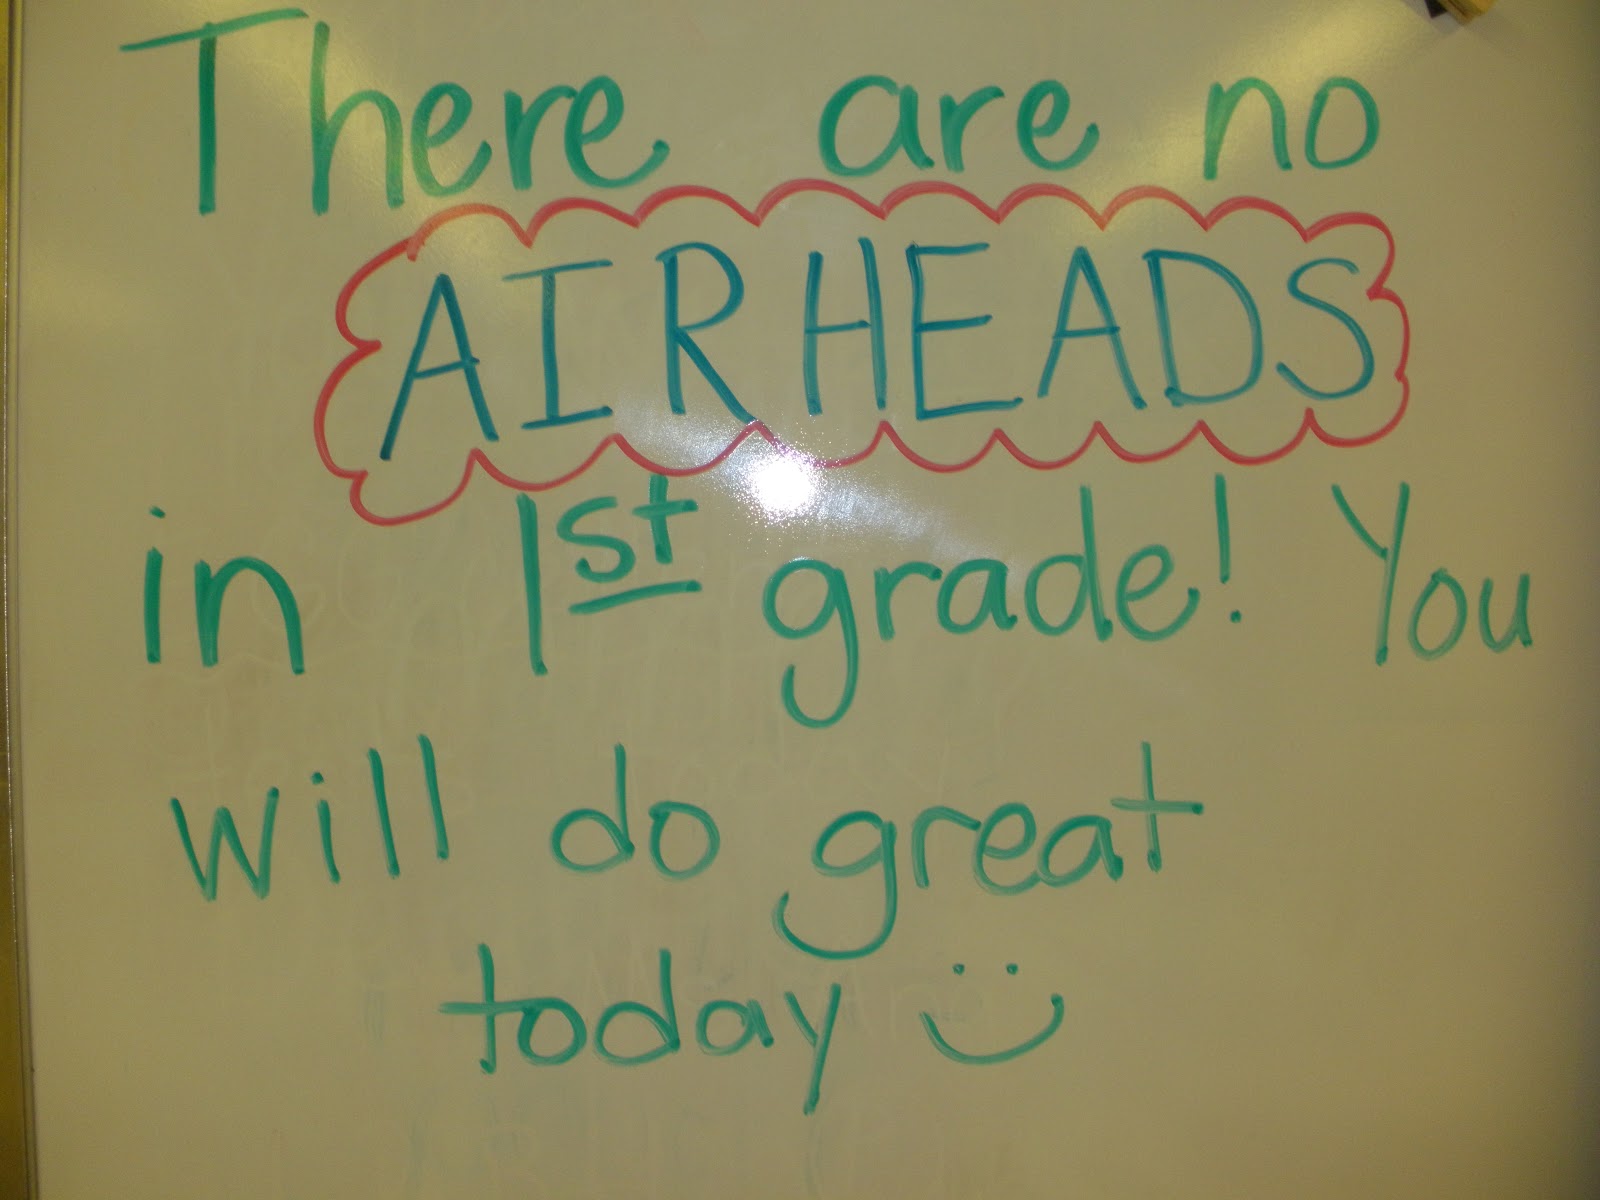 There are no
AIRHEADS
in 1st grade! You
will do great
today